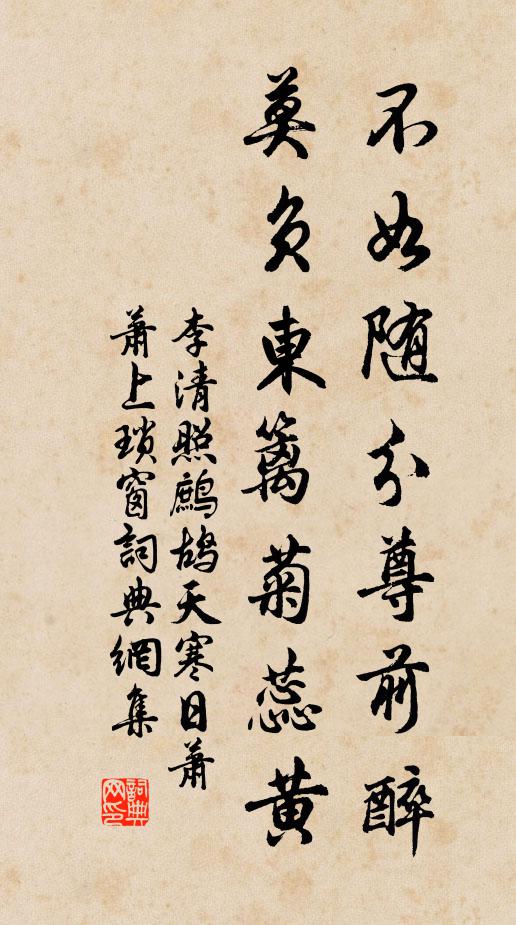 不如随分尊前醉
莫负東籬菊蕊黄
李清照鷓鴣天寒日蕭
蕭上瑣窗詞典網集
詞典网印